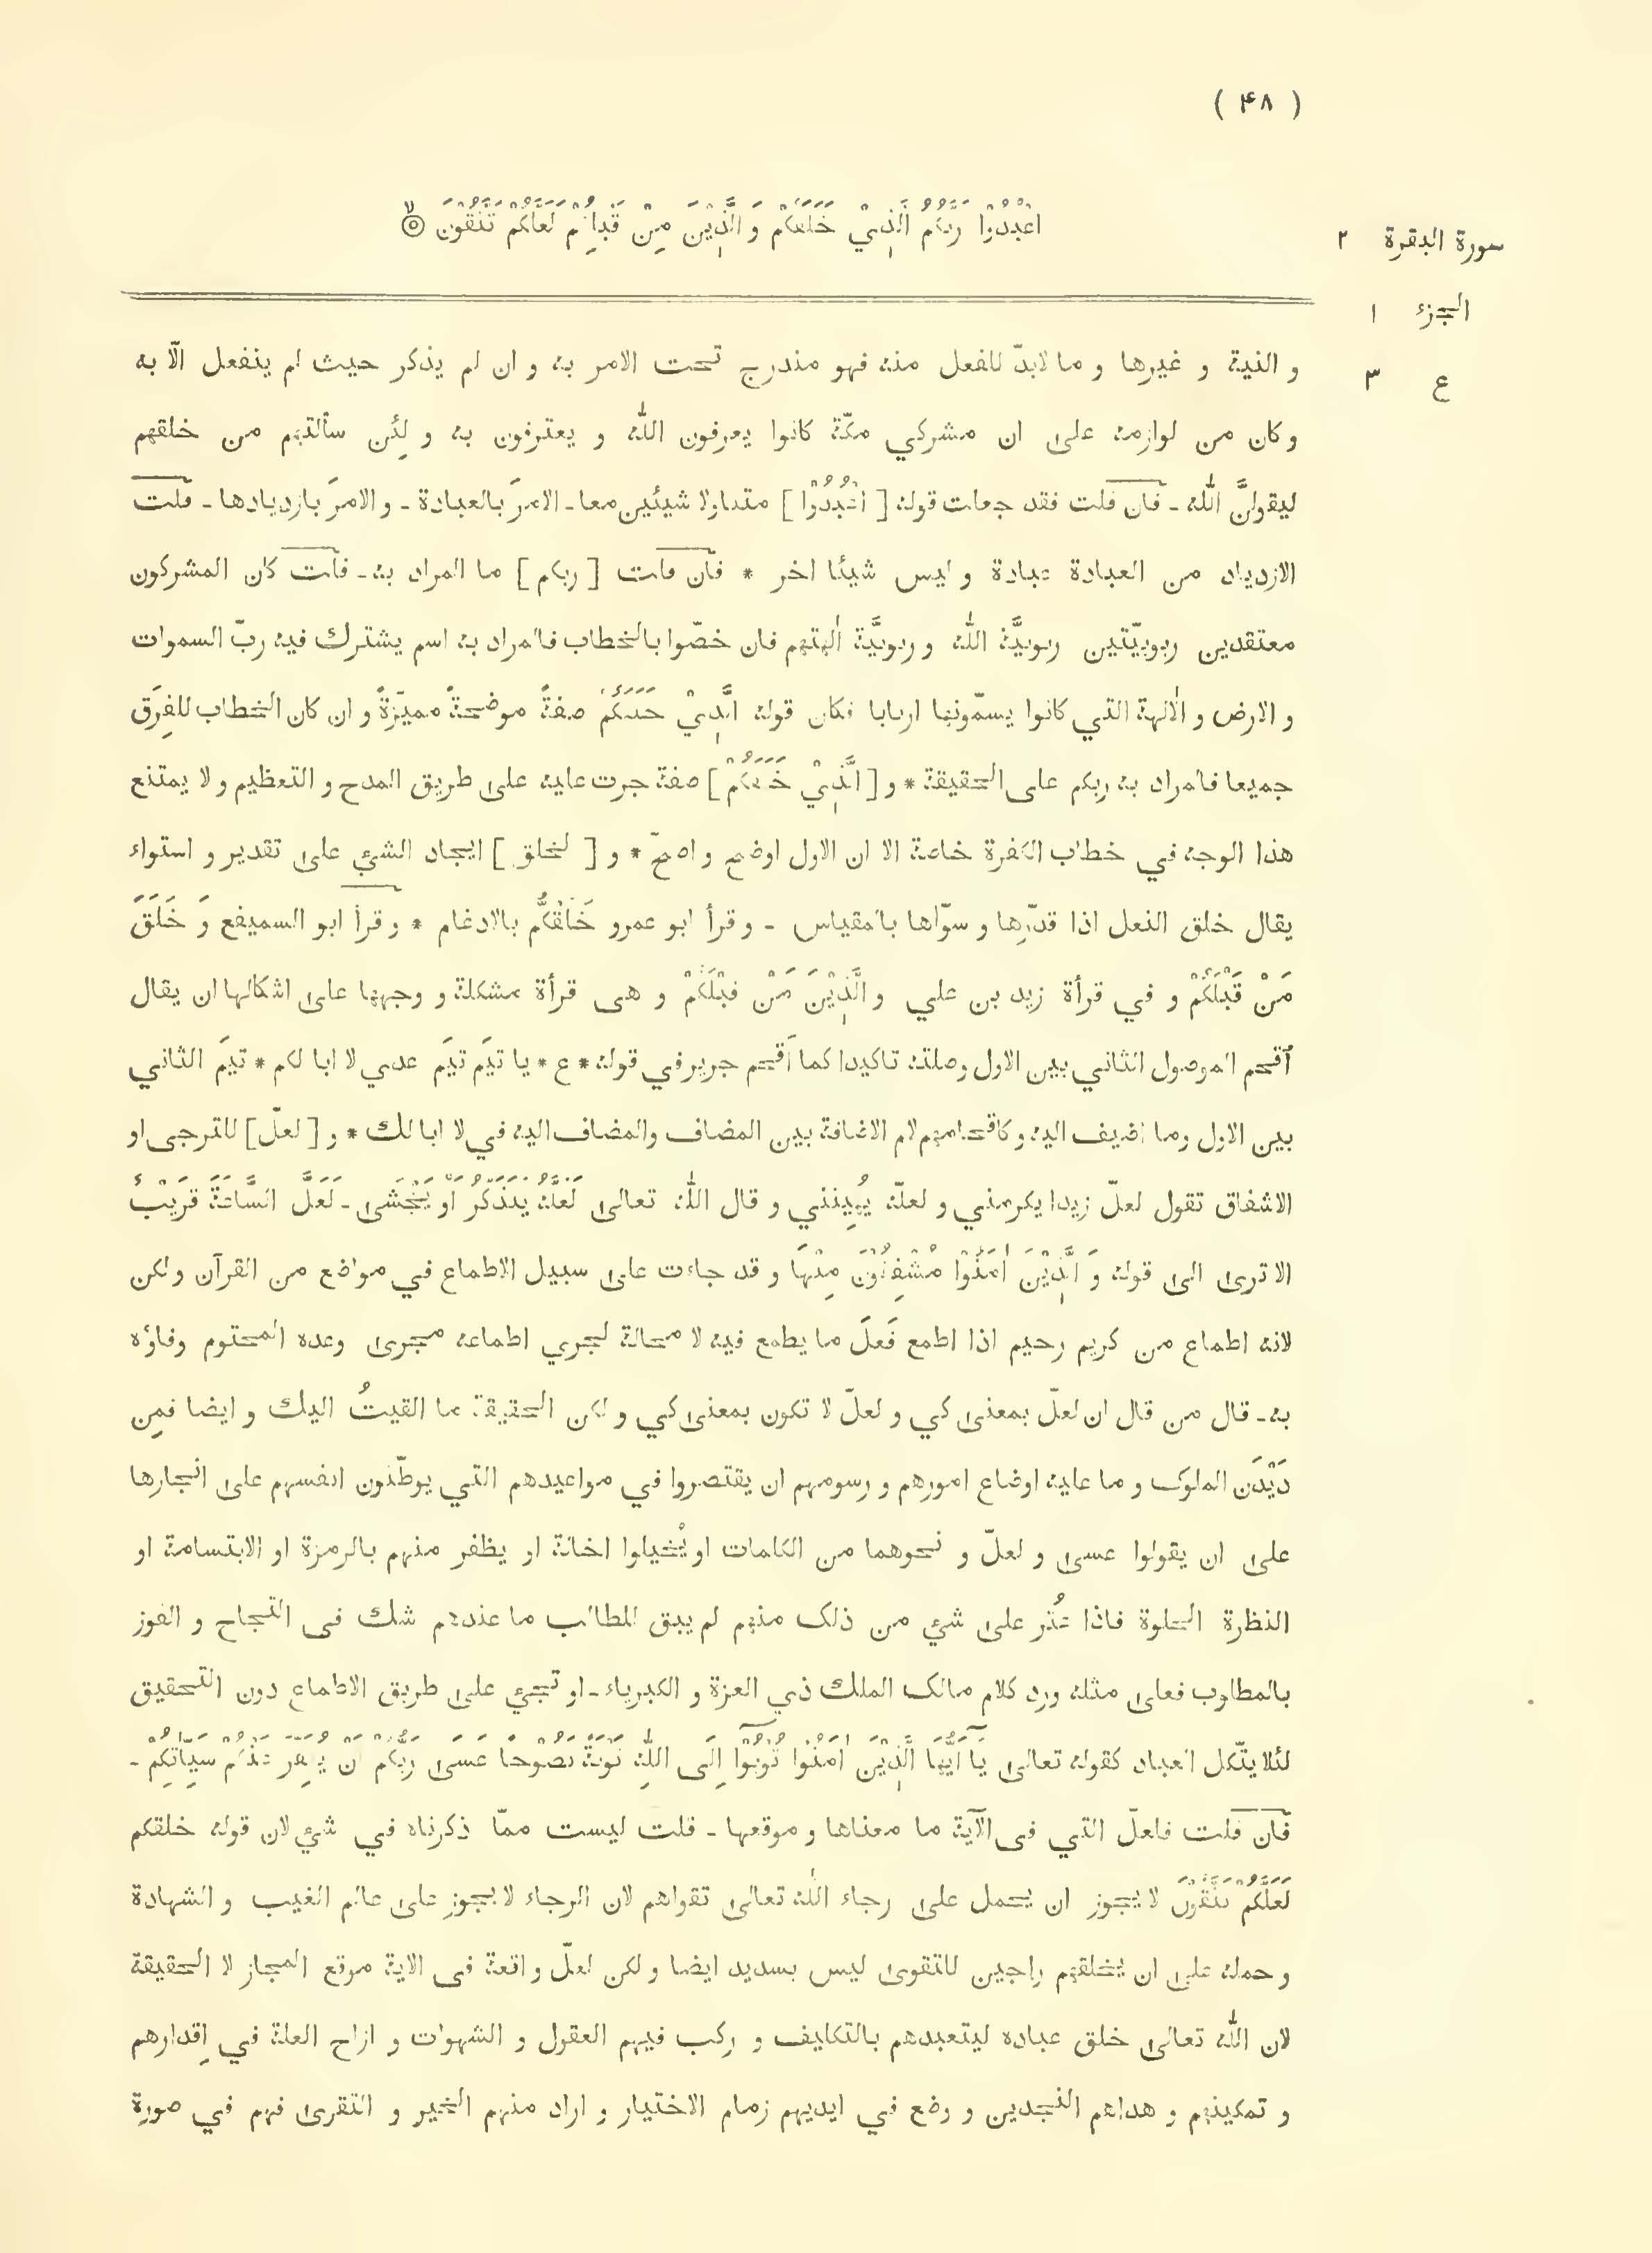 ( ۴۸ )
اعْبُدُوْا رَبَّكُمُ الَّذِيْ خَلَقَكُمْ وَ الَّذِيْنَ مِنْ قَبْلِكُمْ لَعَلَّكُمْ تَتَّقُوْنَ
سورة البقرة ۲
الجزء ۱
ع ۳
و النية و غيرها و ما لابدّ للفعل منه فهو مندرج تحت الامر به و ان لم يذكر حيث لم ينفعل الّا به
و كان من لوازمه على ان مشركي مكّة كانوا يعرفون الله و يعترفون به و لِئن سألتهم من خلقهم
ليقولنَّ الله - فان قلت فقد جعلت قوله [ اعْبُدُوْا ] متناولا شيئين معا - الامرَ بالعبادة - و الامرَ بازديادها - قلت
الازدياد من العبادة عبادة و ليس شيئا اخر * فان قلت [ ربكم ] ما المراد به - قلت كان المشركون
معتقدين ربوبيّتين ربوبيَّة الله و ربوبيَّة اٰلهتهم فان خصّوا بالخطاب فالمراد به اسم يشترك فيه ربّ السموات
و الارض و الاٰلهة التي كانوا يسمّونها اربابا فكان قوله الَّذِيْ خَلَقَكُمْ صفةً موضحةً مميّزةً و ان كان الخطاب للفِرَق
جميعا فالمراد به ربكم على الحقيقة * و [ الَّذِيْ خَلَقَكُمْ ] صفة جرت عليه على طريق المدح و التعظيم و لا يمتنع
هذا الوجه في خطاب الكفرة خاصة الا ان الاول اوضح و اصحّ * و [ الخلق ] ايجاد الشئ على تقدير و استواء
يقال خلق النعل اذا قدّرها و سوّاها بالمقياس - و قرأ ابو عمرو خَلَقْكُّم بالادغام * و قرأ ابو السميفع وَ خَلَقَ
مَنْ قَبْلَكُمْ و في قرأة زيد بن علي و الَّذِيْنَ مَنْ قَبْلَكُمْ و هى قرأة مشكلة و وجهها على اشكالها ان يقال
اُقحم الموصول الثاني بين الاول وصلته تاكيدا كما اَقحم جرير في قوله * ع * يا تيَم تيَم عدي لا ابا لكم * تيَم الثاني
بين الاول وما اضيف اليه و كاقحامهم لام الاضافة بين المضاف والمضاف اليه في لا ابا لك * و [ لعلّ ] للترجى او
الاشفاق تقول لعلّ زيدا يكرمني و لعلّه يُهِينني و قال الله تعالى لَعَلَّهُ يَتَذَكَّرُ اَوْ يَخْشٰى - لَعَلَّ السَّاعَةَ قَرِيْبٌ
الا ترى الى قوله وَ الَّذِيْنَ اٰمَنُوْا مُشْفِقُوْنَ مِنْهَا و قد جاءت على سبيل الاطماع في مواضع من القرآن ولكن
لانه اطماع من كريم رحيم اذا اطمع فَعَلَ ما يطمع فيه لا محالة لجري اطماعه مجرى وعده المحتوم وفاؤه
به - قال من قال ان لعلّ بمعنى كي و لعلّ لا تكون بمعنى كي و لكن الحقيقة ما القيتُ اليك و ايضا فمِن
دَيْدَن الملوك و ما عليه اوضاع امورهم و رسومهم ان يقتصروا في مواعيدهم التي يوطّنون انفسهم على انجازها
على ان يقولوا عسى و لعلّ و نحوهما من الكلمات او يُخيلوا اخالة او يظفر منهم بالرمزة او الابتسامة او
النظرة الحلوة فاذا عُثر على شئ من ذلك منهم لم يبق للطالب ما عندهم شك فى النجاح و الفوز
بالمطلوب فعلى مثله ورد كلام مالك الملك ذي العزة و الكبرياء - او تجئ على طريق الاطماع دون التحقيق
لئلا يتّكل العباد كقوله تعالى يٰٓاَيُّهَا الَّذِيْنَ اٰمَنُوْا تُوْبُوْٓا اِلَى اللّٰهِ تَوْبَةً نَصُوْحًا عَسٰى رَبُّكُمْ اَنْ يُكَفِّرَ عَنْكُمْ سَيِّاٰتِكُمْ -
فان قلت فلعلّ التي فى الآية ما معناها و موقعها - قلت ليست ممّا ذكرناه في شئ لان قوله خلقكم
لَعَلَّكُمْ تَتَّقُوْنَ لا يجوز ان يحمل على رجاء الله تعالى تقواهم لان الرجاء لا يجوز على عالم الغيب و الشهادة
و حمله على ان يخلقهم راجين للتقوى ليس بسديد ايضا و لكن لعلّ واقعة فى الاية موقع المجاز لا الحقيقة
لان الله تعالى خلق عباده ليتعبدهم بالتكليف و ركب فيهم العقول و الشهوات و ازاح العلة في اِقدارهم
و تمكينهم و هداهم النجدين و وضع في ايديهم زمام الاختيار و اراد منهم الخير و التقوى فهم في صورة